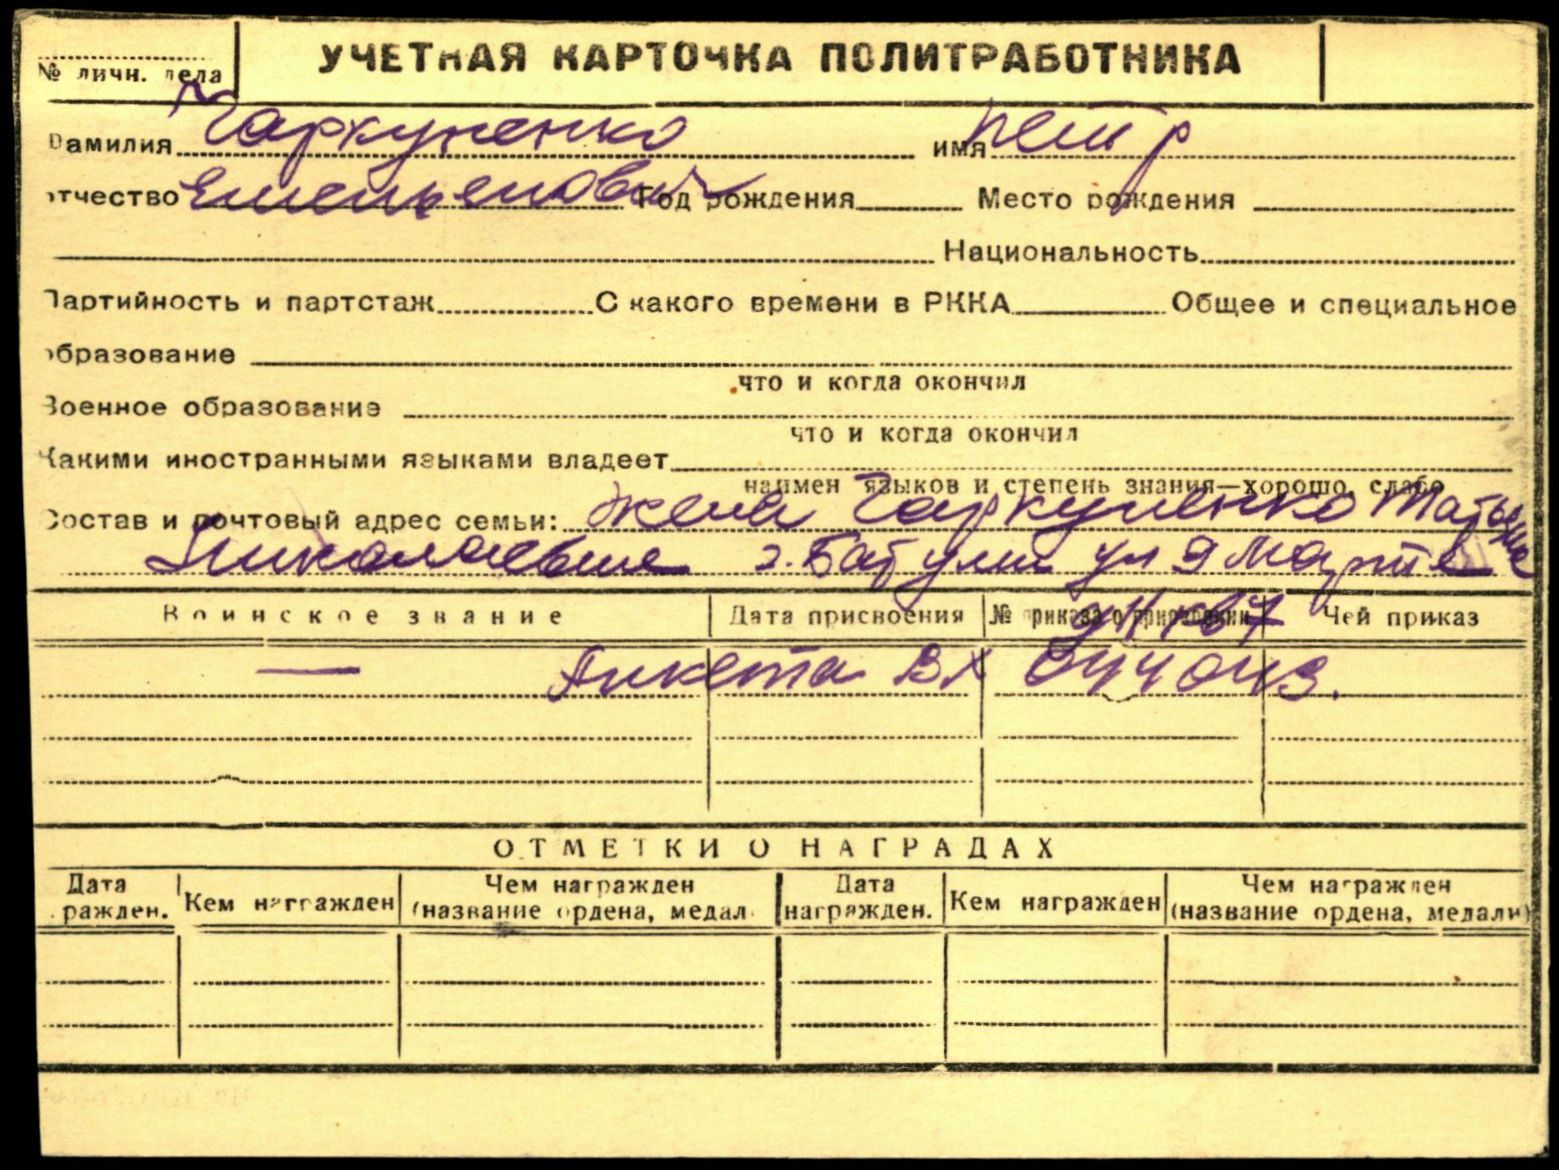 УЧЕТНАЯ КАРТОЧКА ПОЛИТРАБОТНИКА
№ личн. дела
Фамилия Чаркуненко имя Петр
отчество Емельянович Год рождения Место рождения
Национальность
Партийность и партстаж С какого времени в РККА Общее и специальное
образование
что и когда окончил
Военное образование
что и когда окончил
Какими иностранными языками владеет
наимен языков и степень знания—хорошо, слабо
Состав и почтовый адрес семьи: жена Чаркуненко Татьяна
Николаевна г. Батуми ул 9 Марта
Воинское звание Дата присвоения № приказа о присвоении Чей приказ
— Анкета Вх 044043.
ОТМЕТКИ О НАГРАДАХ
Дата награжден. Кем награжден Чем награжден (название ордена, медали) Дата награжден. Кем награжден Чем награжден (название ордена, медали)